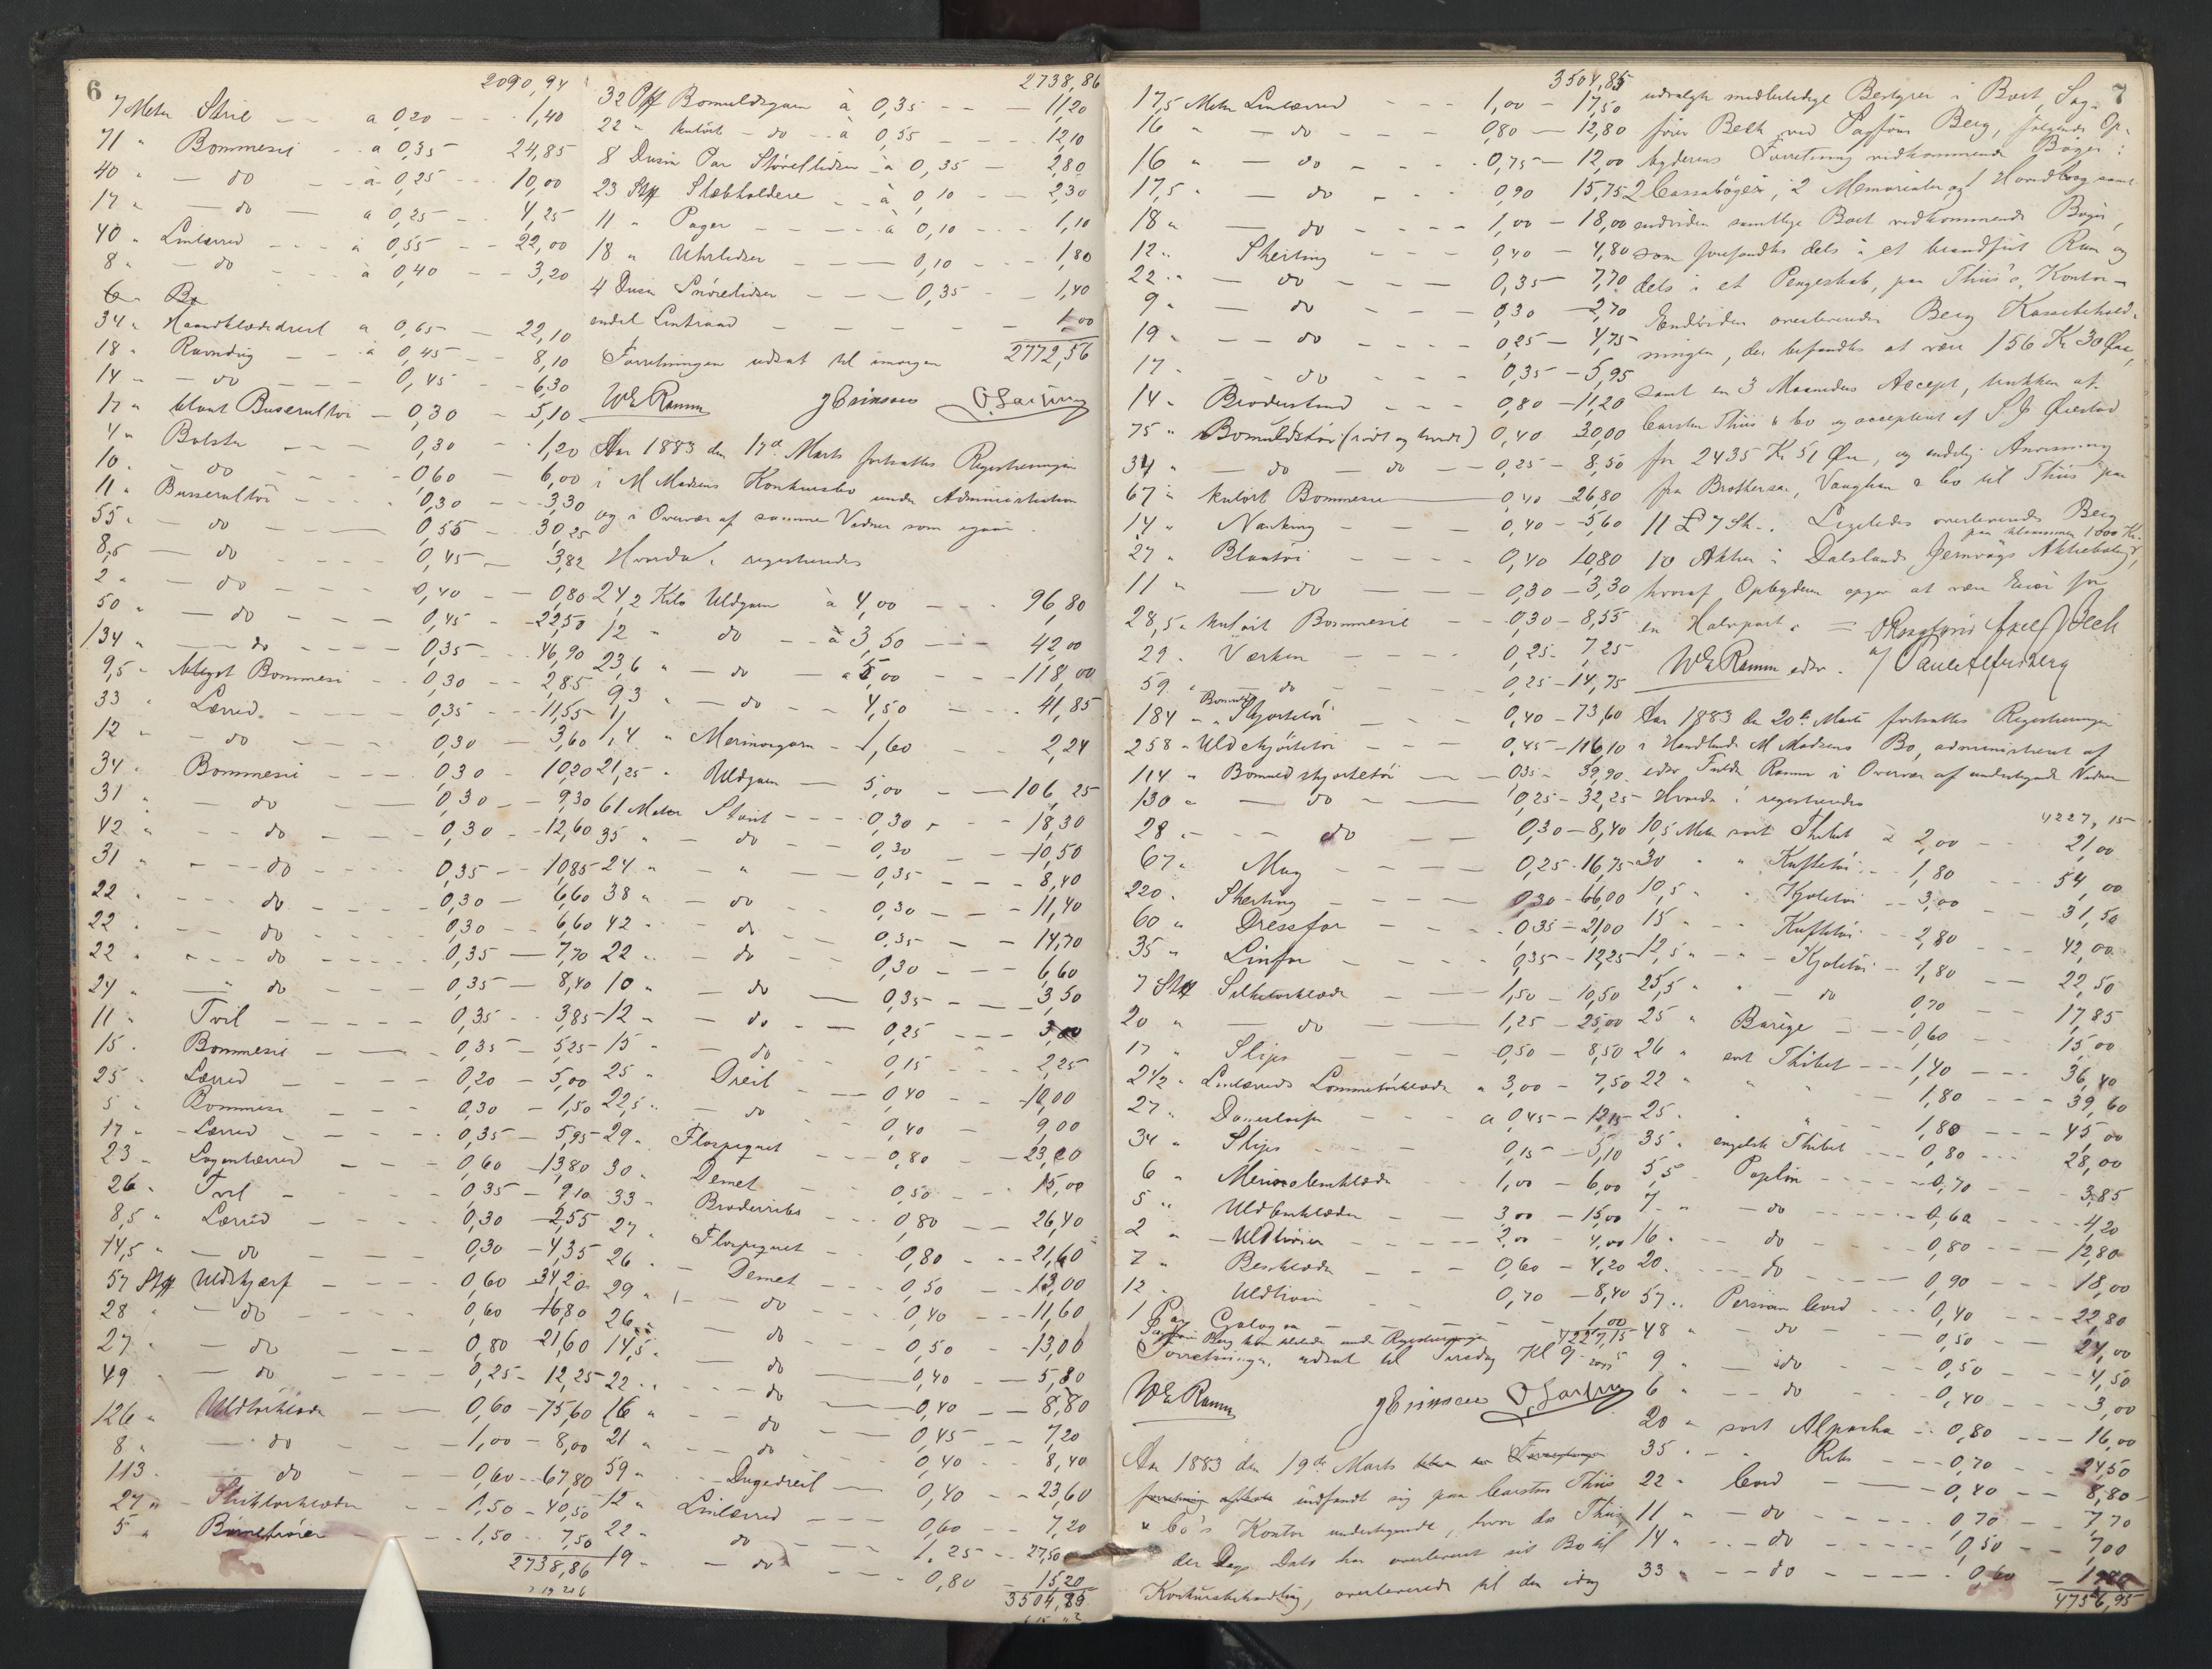 6
2090,94
7 Meter Strie - - a 0,20 - - 1,40
71 " Bommesie - - a 0,35 - 24,85
40 " - do - - à 0,25 - - 10,00
17 " - do - a 0,25 - - 4,25
40 " Linlærred - - - à 0,55 - - 22,00
8 " - do - - - à 0,40 - - 3,20
34 " Haandklædedreil a 0,65 - 22,10
18 " Ravndug - - à 0,45 - - 8,10
14 " - do - - - 0,45 - - 6,30
17 " blaat Buserultøi - 0,30 - 5,10
4 " Bolster - - - 0,30 - 1,20
10 " - do - - - 0,60 - 6,00
11 " Busserultøi - - - 0,30 - - 3,30
55 " - do - - - 0,55 - 30,25
8,5 - do - - - 0,45 - 3,82
2 " - do - - - 0,40 - - 0,80
50 " - do - - - 0,45 - - 22,50
134 " - do - - - 0,35 - - 46,90
9,5 " bleget Bommesi - - 0,30 - - 2,85
33 " Lærred - - - 0,35 - - 11,55
12 " - do - - - 0,30 - 3,60
34 " Bommesie - - - 0,30 - 10,20
31 " - do - - - 0,30 - - 9,30
42 " - do - - - 0,30 - - 12,60
31 " - do - - - 0,35 - - 10,85
22 " - do - - - 0,30 - 6,60
22 " - do - - - 0,30 - - 6,60
22 " - do - - - 0,35 - 7,70
24 " - do - - - 0,35 - 8,40
11 " Tvil - - - 0,35 - - 3,85
15 " Bommesie - - - 0,35 - 5,25
25 " Lærred - - - 0,20 - 5,00
5 " Bommesi - - - 0,30 - 1,50
17 " Lærred - - - 0,35 - 5,95
23 " Lagenlærred - - - 0,60 - 13,80
26 " Tvil - - - 0,35 - 9,10
8,5 " Lærred - - - 0,30 - 2,55
14,5 " - do - - - 0,30 - 4,35
57 Stk Uldskjærf - - - 0,60 34,20
28 " - do - - - 0,60 16,80
27 " - do - - - 0,80 - 21,60
49 " - do - - - 0,25 - 12,25
126 " Uldtørklæde - - 0,60 - 75,60
8 " - do - - - 1,00 - 8,00
113 " - do - - - 0,60 - 67,80
27 " - Silketørklæder - - 1,50 - 40,50
5 " Børnetrøier - - - 1,50 - - 7,50
2738,86
2738,86
32 Stk Bomuldsgarn à 0,35 - - - 11,20
22 " kulört - do - - à 0,55 - - - 12,10
8 Dusin Par Støvletlidser - à 0,35 - 2,80
23 Stk Slæbholdere - - à 0,10 - - 2,30
11 " Pager - - - - à 0,10 - - - 1,10
18 " Uhrlidser - - - 0,10 - - - 1,80
4 Dusin Snørelidser - - - 0,35 - - 1,40
endel Lintraad - - - - - - - 1,00
2772,56
Forretningen udsat til imorgen
W E Ramm
Aar 1883 den 17de Marts fortsattes Registreringen
i M Madsens Konkursbo under Administration
og i Overvær af samme Vidner som igaar.
Hvorda registreredes
24,2 Kilo Uldgarn à 4,00 - - - 96,80
12 " do - - à 3,50 - - - 42,00
23,6 " - do - à 5,00 - - - 118,00
9,3 " - do - - 4,50 - - - 41,85
1,4 " Merinogarn - 1,60 - - 2,24
21,25 " Uldgarn - 5,00 - - 106,25
61 Meter Stout - - - 0,30 - - - 18,30
35 " - do - - - 0,30 - - - 10,50
24 " - " - - - 0,35 - - - 8,40
38 " - do - - - 0,30 - - - 11,40
42 " - do - - - 0,35 - - 14,70
22 " - do - - - 0,30 - - - 6,60
10 " - do - - - 0,35 - - - 3,50
12 " - do - - - 0,25 - - - 3,00
15 " - do - - - 0,15 - - - 2,25
25 " Dreil - - - 0,40 - - - 10,00
22,5 " - do - - - 0,40 - - 9,00
29 " Flospiquet - - - 0,80 - - 23,20
30 " Demet - - - 0,50 - - - 15,00
33 " Broderribs - - - 0,80 - - 26,40
27 " Flospiquet - - - 0,80 - - - 21,60
26 " Demet - - - 0,50 - - - 13,00
29 " - do - - - 0,40 - - - 11,60
26 " - do - - - 0,50 - - 13,00
14,5 " - do - - - 0,40 - - - 5,80
22 " - do - - - 0,40 - - - 8,80
16 " - do - - - 0,45 - - 7,20
21 " - do - - - 0,40 - - - 8,40
59 " Dugedreil - 0,40 - - 23,60
12 " Linlærred - - - 0,60 - - 7,20
22 " do - - - 1,25 - - 27,50
19 " - do - - - 0,80 - 15,20
3504,85
7
3504,85
17,5 Meter Linlærred - - - 1,00 - 17,50
16 " - do - - - 0,80 - 12,80
16 " - do - - - 0,75 - 12,00
17,5 " - do - - - 0,90 15,75
18 " - do - - - 1,00 - 18,00
12 " Sherting - - - 0,40 - 4,80
22 " - do - - - 0,35 - 7,70
9 " - do - - - 0,30 - 2,70
19 " - do - - - 0,25 - 4,75
17 " - do - - - 0,35 - 5,95
14 " Broderstrimel - - - 0,80 - 11,20
75 " Bomuldstøi (rødt og bredt) 0,40 30,00
34 " - do - do - - 0,25 - 8,50
67 " kulört Bommesie - 0,40 - 26,80
14 " Nanking - - - 0,40 - 5,60
27 " Blaatøi - - - 0,40 10,80
11 " - do - - - 0,30 - 3,30
28,5 " kulört Bommesie - - 0,30 - 8,55
29 " Værken - - - 0,25 - 7,25
59 " - do - - - 0,25 - 14,75
184 " Bomulds Skjortetøi - - - 0,40 - 73,60
258 " Uldskjortetøi - - - 0,45 - 116,10
114 " Bomuldskjortetøi - - 0,35 - 39,90
130 " - do - - - 0,25 - 32,25
28 " - - do - - 0,30 - 8,40
67 " Mug - - - 0,25 - 16,75
220 " Sherting - - - 0,30 - 66,00
60 " Dressfor - - - 0,35 - 21,00
35 " Linfor - - - 0,35 - 12,25
7 Stk Silketørklæde - - 1,50 - 10,50
20 " - do - - - 1,25 - 25,00
17 " Slips - - - 0,50 - 8,50
2 1/2 " Linlærreds Lommetørklæde a 3,00 - 7,50
27 " - - - a 0,45 - 12,15
34 " Slips - - - 0,15 - 5,10
6 " - - - 1,00 - 6,00
5 " Uldtørklæder - - 3,00 - 15,00
2 " - Uldtrøier - - - 2,00 - 4,00
7 " - - - 0,60 - 4,20
12 " Uldtrøier - - 0,70 - 8,40
1 Par - - - - 1,00
4227,15
Sagfører Berg kom tilstede under Registreringen
Forretningen udsat til Tirsdag Kl 9
W E Ramm
Aar 1883 den 19de Marts
indfandt sig paa Carsten Thiis
& Co's Kontor undertegnede, hvor da Thiis,
der Dags Dato har overleveret sit Bo til
Konkursbehandling, overleverede til den idag
udvalgte midlertidige Bestyrer i Boet, Sag-
fører Bech ved Sagfører Berg, følgende Op-
byderens Forretning vedkommende Bøger:
2 Cassabøger, 2 Memorialer og 1 Hovedbog samt
endvidere samtlige Boet vedkommende Bøger,
som forefandtes dels i et brandfrit Rum og
dels i et Pengeskab, paa Thiis's Kontor -
Endvidere overleveredes Berg Kassebehold-
ningen, der befandtes at være 156 Kr 30 Øre,
samt en 3 Maaneders Accept, trukken af
Carsten Thiis & Co og accepteret af S. J. Ørestad
for 2435 Kr 51 Øre, og endelig Anvisning
fra Brothersen, Vaughan & Co til Thiis paa
11 £ 7 Sh. Ligeledes overleveredes Berg
paa tilsammen 1000 Kr.
10 Aktier i Dalslands Jernvägs Aktiebolag,
hvoraf Opbyderen opgav at være Eier for
en Halvpart.
W E Ramm edsv.
Aar 1883 den 20de Marts fortsattes Registreringen
i Handlende M Madsens Bo, administreret af
edsv Fuldm Ramm i Overvær af undertegnede Vidner
Hvorda registreredes
4227,15
10,5 Meter sort Thibet à 2,00 - - 21,00
30 " " Kaftetøi - - 1,80 - - - 54,00
10,5 " " Kjoletøi - - 3,00 - - 31,50
15 " - - Kaftetøi - 2,80 - - - 42,00
12,5 " - - Kjoletøi - 1,80 - - - 22,50
25,5 " " - do 0,70 - - 17,85
25 " Barège - - - 0,60 - - - 15,00
26 " sort Thibet - - - 1,40 - - - 36,40
22 " " " - 1,80 - - - 39,60
25 " " " 1,80 - - - 45,00
35 " engelsk Thibet - - - 0,80 - - - 28,00
5,5 " Poplin - - - - 0,70 - - - 3,85
7 " - do - - - 0,60 - - - 4,20
16 " - do - - - 0,80 - - - 12,80
20 " - do - - - 0,90 - - - 18,00
57 " Persian Cord - - - 0,40 - - - 22,80
48 " - do - - - 0,50 - - 24,00
9 " - do - - - 0,50 - - 4,50
6 " - - do - - - 0,40 - - - 3,00
20 " sort Alpacka - - 0,80 - - - 16,00
35 " - " Ribs - - - 0,70 - - - 24,50
22 " Cord - - - 0,40 - - 8,80
11 " - do - - - 0,70 - - 7,70
14 " - do - - - 0,50 - - 7,00
33 " - do - - - 0,60
4756,95